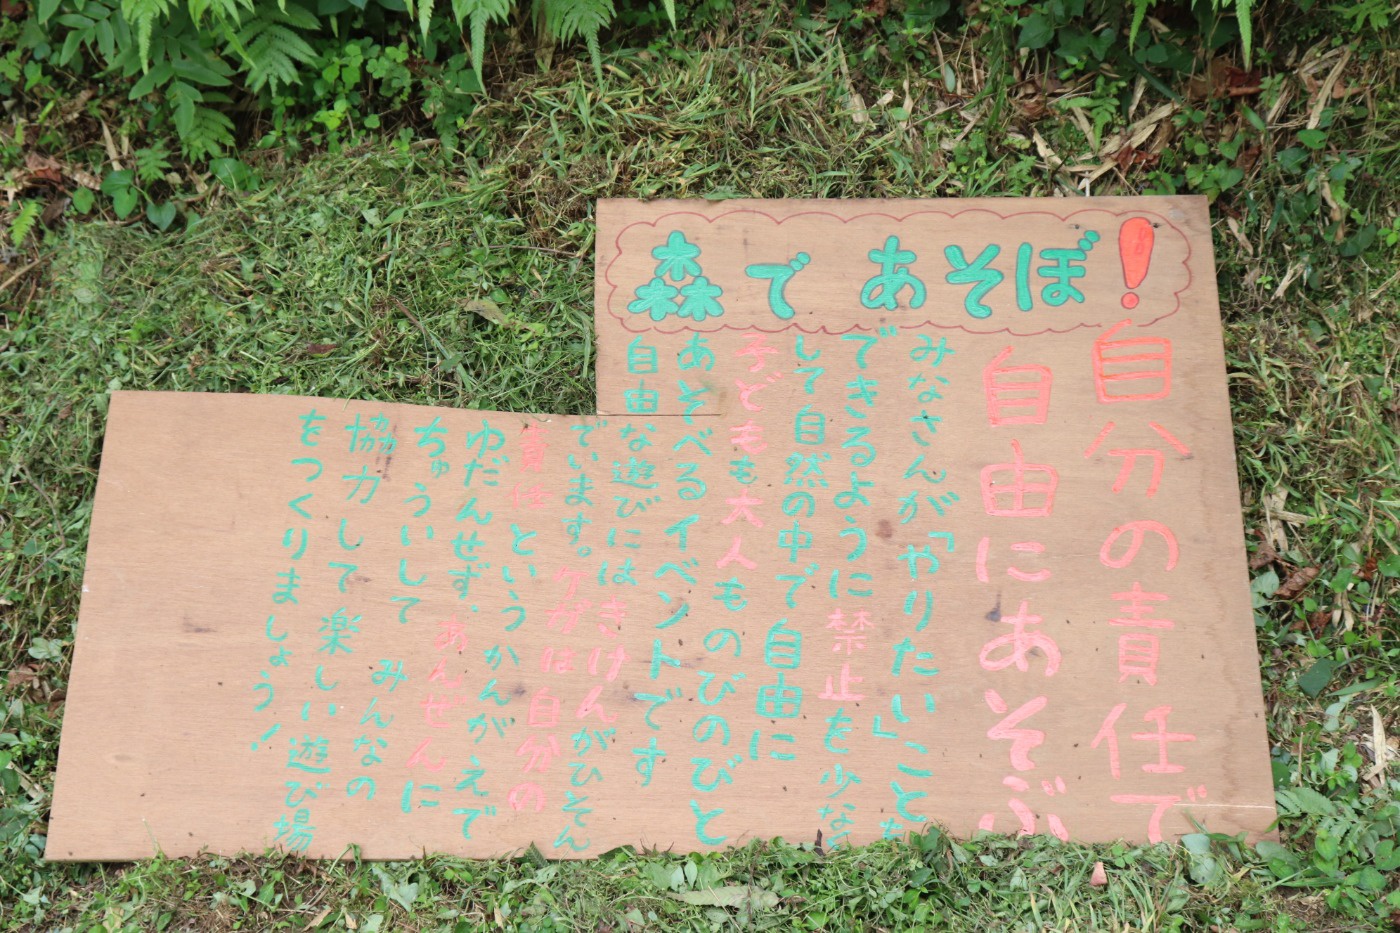 森であそぼ!
自分の責任で
自由にあそぶ
みなさんが「やりたい」ことも
できるように禁止を少な
して自然の中で自由に
子どもも大人ものびのびと
あそべるイベントです
自由な遊びにはきけんがひそん
でいます。ケガは自分の
責任というかんがえで
ゆだんせず、あんぜんに
ちゅういして みんなの
協力して楽しい遊び場
をつくりましょう!